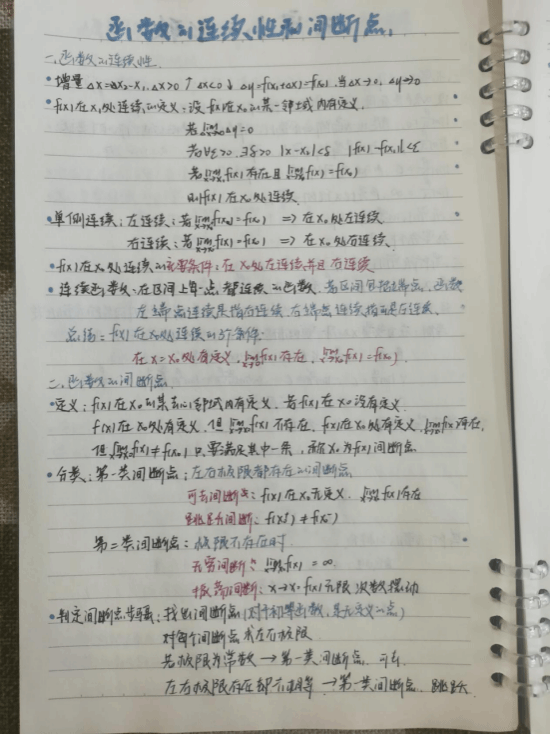 函数的连续性和间断点
一、函数的连续性
•增量 Δx=x₂-x₁, Δx>0 ↑ Δx<0 ↓ Δy=f(x₁+Δx)-f(x₁) 当Δx→0, Δy→0
•f(x)在x₀处连续的定义:设f(x)在x₀的某一邻域内有定义,
若lim Δy=0
若∀ε>0, ∃δ>0 |x-x₀|<δ |f(x)-f(x₀)|<ε
若lim f(x)存在且lim f(x)=f(x₀)
则f(x)在x₀处连续
•单侧连续:左连续:若lim f(x)=f(x₀) => 在x₀处左连续
右连续:若lim f(x)=f(x₀) => 在x₀处右连续
•f(x)在x₀处连续的充要条件:在x₀处左连续并且右连续
•连续函数:在区间上每一点都连续的函数,若区间包括端点,函数
左端点连续是指右连续,右端点连续指的是左连续
总结:f(x)在x₀处连续的3个条件:
在x=x₀处有定义,lim f(x)存在,lim f(x)=f(x₀)
二、函数的间断点
•定义:f(x)在x₀的某去心邻域内有定义,若f(x)在x₀没有定义
f(x)在x₀处有定义,但lim f(x)不存在,f(x)在x₀处有定义,lim f(x)存在,
但lim f(x)≠f(x₀) 只要满足其中一条,称x₀为f(x)间断点
•分类:第一类间断点:左右极限都存在的间断点
可去间断点:f(x)在x₀无定义,lim f(x)存在
跳跃间断:f(x₀⁺)≠f(x₀⁻)
第二类间断点:极限不存在时
无穷间断:lim f(x)=∞
振荡间断:x→x₀ f(x)无限次数摆动
•判定间断点步骤:找出间断点(对于初等函数,是无定义的点)
对每个间断点求左右极限
若极限为常数→第一类间断点,可去
左右极限存在却不相等→第一类间断点,跳跃